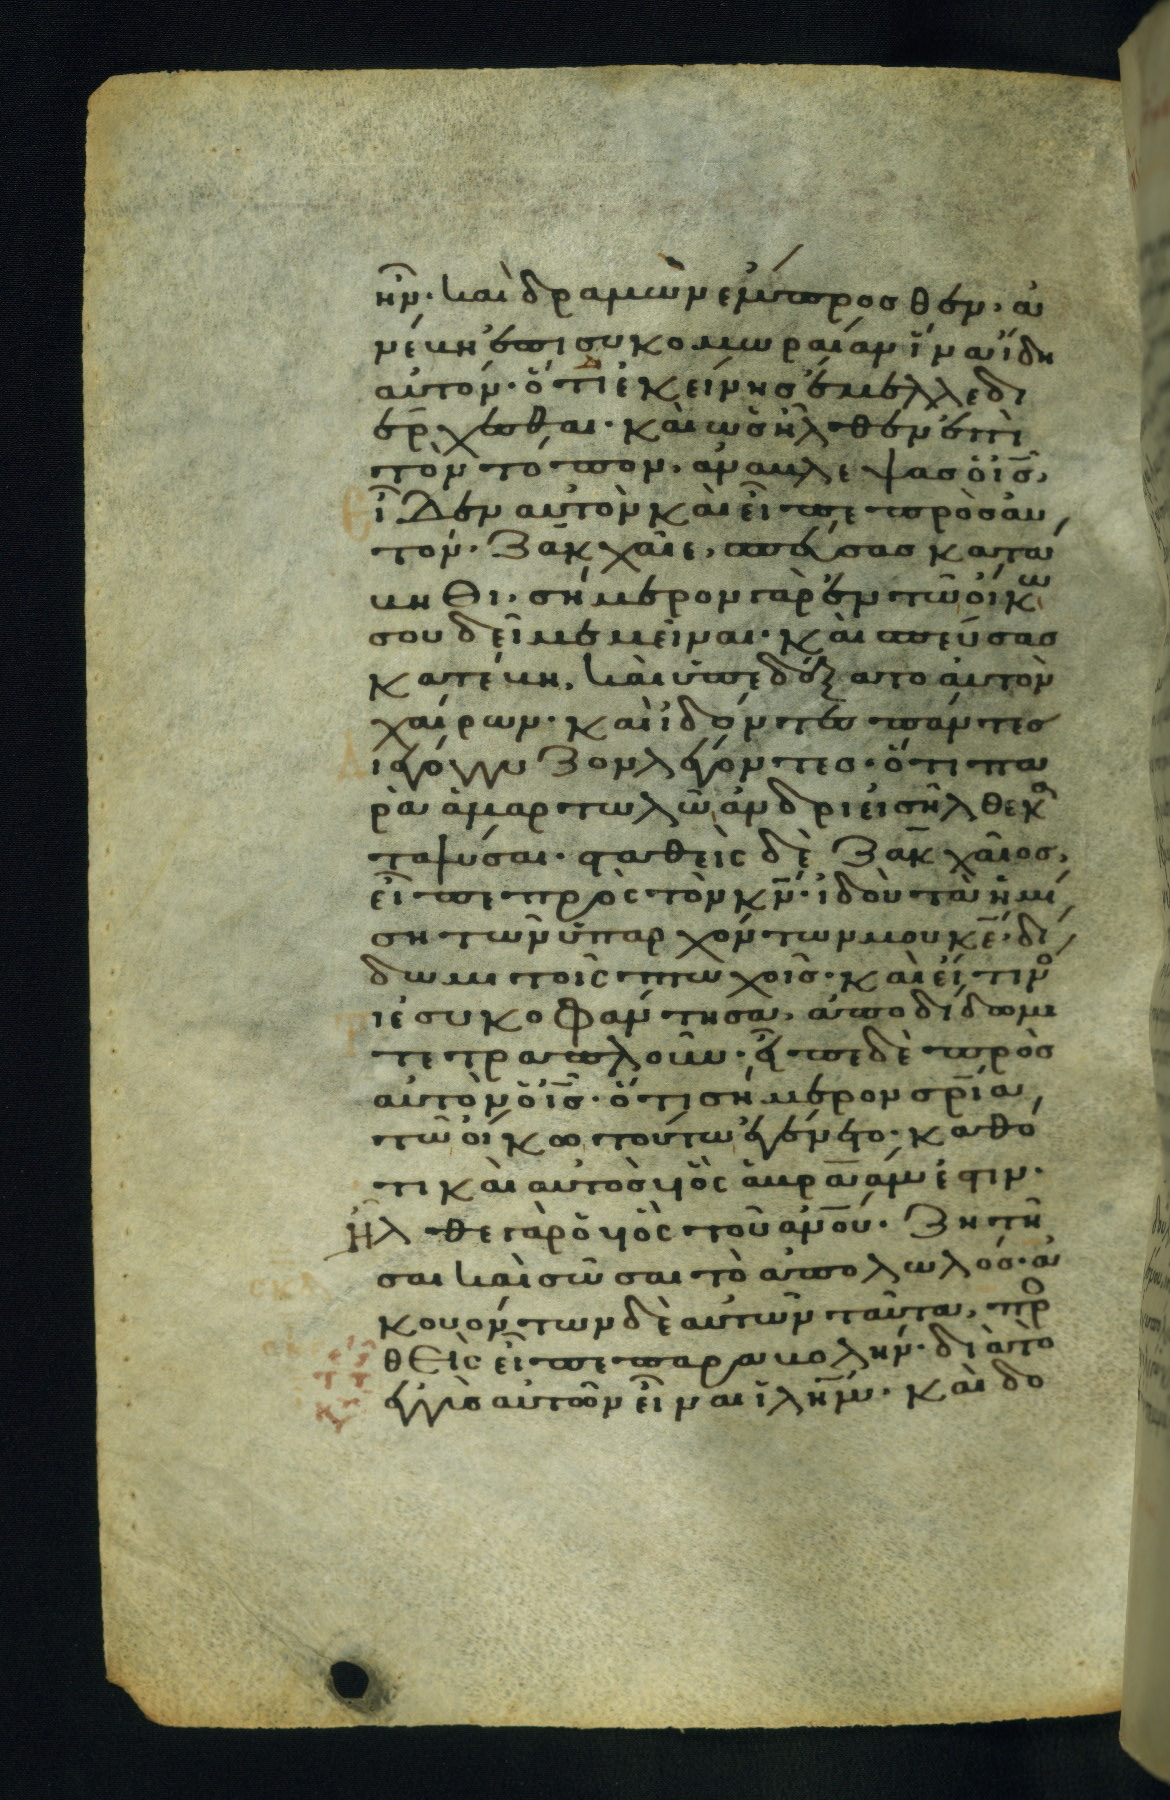 ἦν· καὶ δραμὼν ἔμπροσθεν, ἀ
νέβη ἐπι συκομωραίαν ἵνα ἴδη
αὐτόν· ὅτι ἐκείνης ἔμελλε δι
έρχεσθαι· καὶ ὡς ἦλθεν ἐπὶ
τὸν τόπον, ἀναβλεψας ὁ ἰς̅,
εἶδεν αὐτὸν καὶ εἶπε πρὸς αὐ
τόν· Ζακχαῖε, σπεύσας κατα
βηθι· σήμερον γὰρ ἐν τῶ οἴκω
σου δεῖ με μεῖναι· καὶ σπεύσας
κατέβη, καὶ ὑπεδέξατο αὐτὸν
χαίρων· καὶ ἰδόντες πάντες
διεγόγγυζον λέγοντες· ὅτι πα
ρὰ ἁμαρτωλῶ ἀνδρὶ εἰσῆλθε κα
ταλύσαι· σταθεὶς δὲ Ζακχαῖος,
εἶπε πρὸς τὸν κν̅· ἰδοὺ τὰ ἡμί
ση τῶν ὑπαρχόντων μου κε̅· δί
δωμι τοῖς πτωχοῖς· καὶ εἴ τινο
ς τι ἐσυκοφάντησα, ἀποδίδωμι
τετραπλοῦν· εἶπε δὲ πρὸς
αὐτὸν ὁ ἰς̅· ὅτι σήμερον σρ̅ία
τῶ οἴκω τούτω ἐγένετο· καθό
τι καὶ αὐτὸς υἱὸς ἀβραάμ ἐστιν·
ἦλθε γὰρ ὁ υἱὸς τοῦ ἀν̅ου· ζητῆ
σαι καὶ σῶσαι τὸ ἀπολωλός· ἀ
κουόντων δὲ αὐτῶν ταῦτα, προ
θεὶς εἶπε παραβολήν· διὰ τὸ
ἐγγὺς αὐτὸν εἶναι ἰλη̅μ· καὶ δο